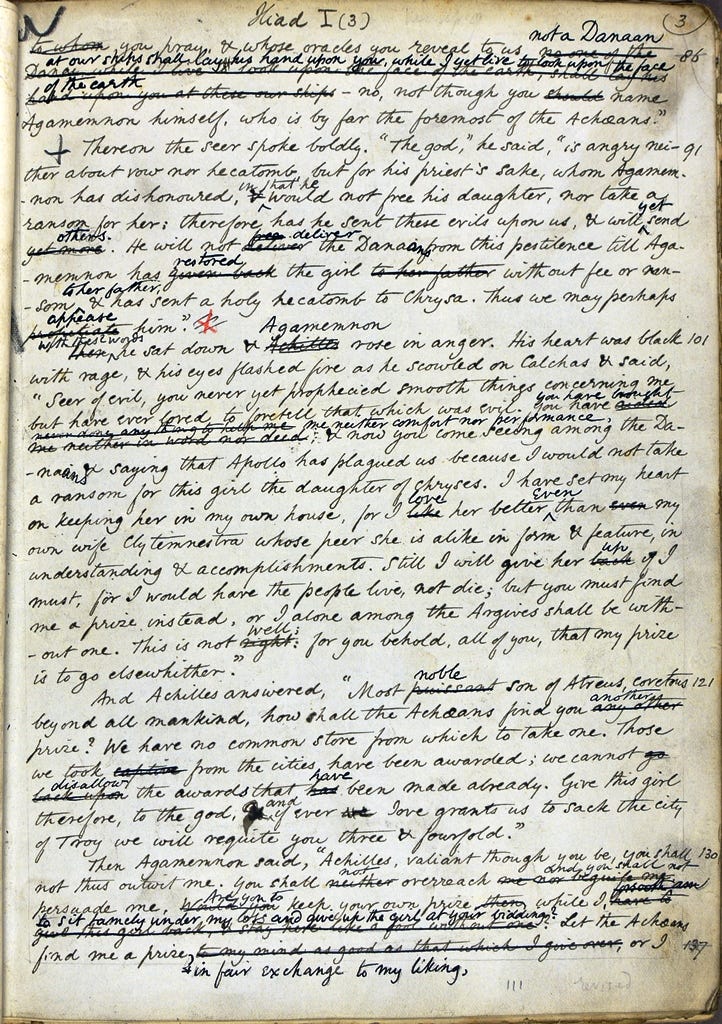 Iliad I (3)
3
not a Danaan
to whom you pray, & whose oracles you reveal to us, no one of the
at our ships shall lay his hand upon you, while I yet live to look upon the face 86
Danaans while I live to look upon the face of the earth, shall lay his
of the earth
hand upon you at these our ships - no, not though you should name
Agamemnon himself, who is by far the foremost of the Achæans."
Thereon the seer spoke boldly. "The god," he said, "is angry nei- 91
ther about vow nor hecatomb, but for his priest's sake, whom Agamem-
in that he
-non has dishonoured, & would not free his daughter, nor take a
yet
ransom for her; therefore has he sent these evils upon us, & will send
others. free deliver
yet more. He will not deliver the Danaans from this pestilence till Aga-
restored
-memnon has given back the girl to her father without fee or ran-
to her father,
-som, & has sent a holy hecatomb to Chrysa. Thus we may perhaps
appease
propitiate him."
With these words Agamemnon
Then, he sat down & Achilles rose in anger. His heart was black 101
with rage, & his eyes flashed fire as he scowled on Calchas & said,
"Seer of evil, you never yet prophecied smooth things concerning me
you have brought
but have ever loved to foretell that which was evil. You have
me neither comfort nor performance;
me neither in word nor deed; & now you come seeing among the Da-
-naans & saying that Apollo has plagued us because I would not take
a ransom for this girl the daughter of Chryses. I have set my heart
love Even
on keeping her in my own house, for I like her better than even my
own wife Clytemnestra whose peer she is alike in form & feature, in
up
understanding & accomplishments. Still I will give her back if I
must, for I would have the people live, not die; but you must find
me a prize instead, or I alone among the Argives shall be with-
well;
-out one. This is not right: for you behold, all of you, that my prize
is to go elsewhither."
noble
And Achilles answered, "Most puissant son of Atreus, covetous 121
another
beyond all mankind, how shall the Achæans find you any other
prize? We have no common store from which to take one. Those
we took captive from the cities, have been awarded; we cannot go
disallow have
back upon the awards that has been made already. Give this girl
and
therefore, to the god, & if ever we Jove grants us to sack the city
of Troy we will requite you three & fourfold."
Then Agamemnon said, "Achilles, valiant though you be, you shall 130
not and you shall not
not thus outwit me. You shall neither overreach me nor beguile my
Are you to forsooth am
persuade me. Would you keep your own prize then, while I have to
to sit tamely under my loss and give up the girl at your bidding?
give this girl back & stay here like a fool without one? Let the Achæans
find me a prize, to my mind as good as that which I give over, or I 137
in fair exchange to my liking,
111 revised